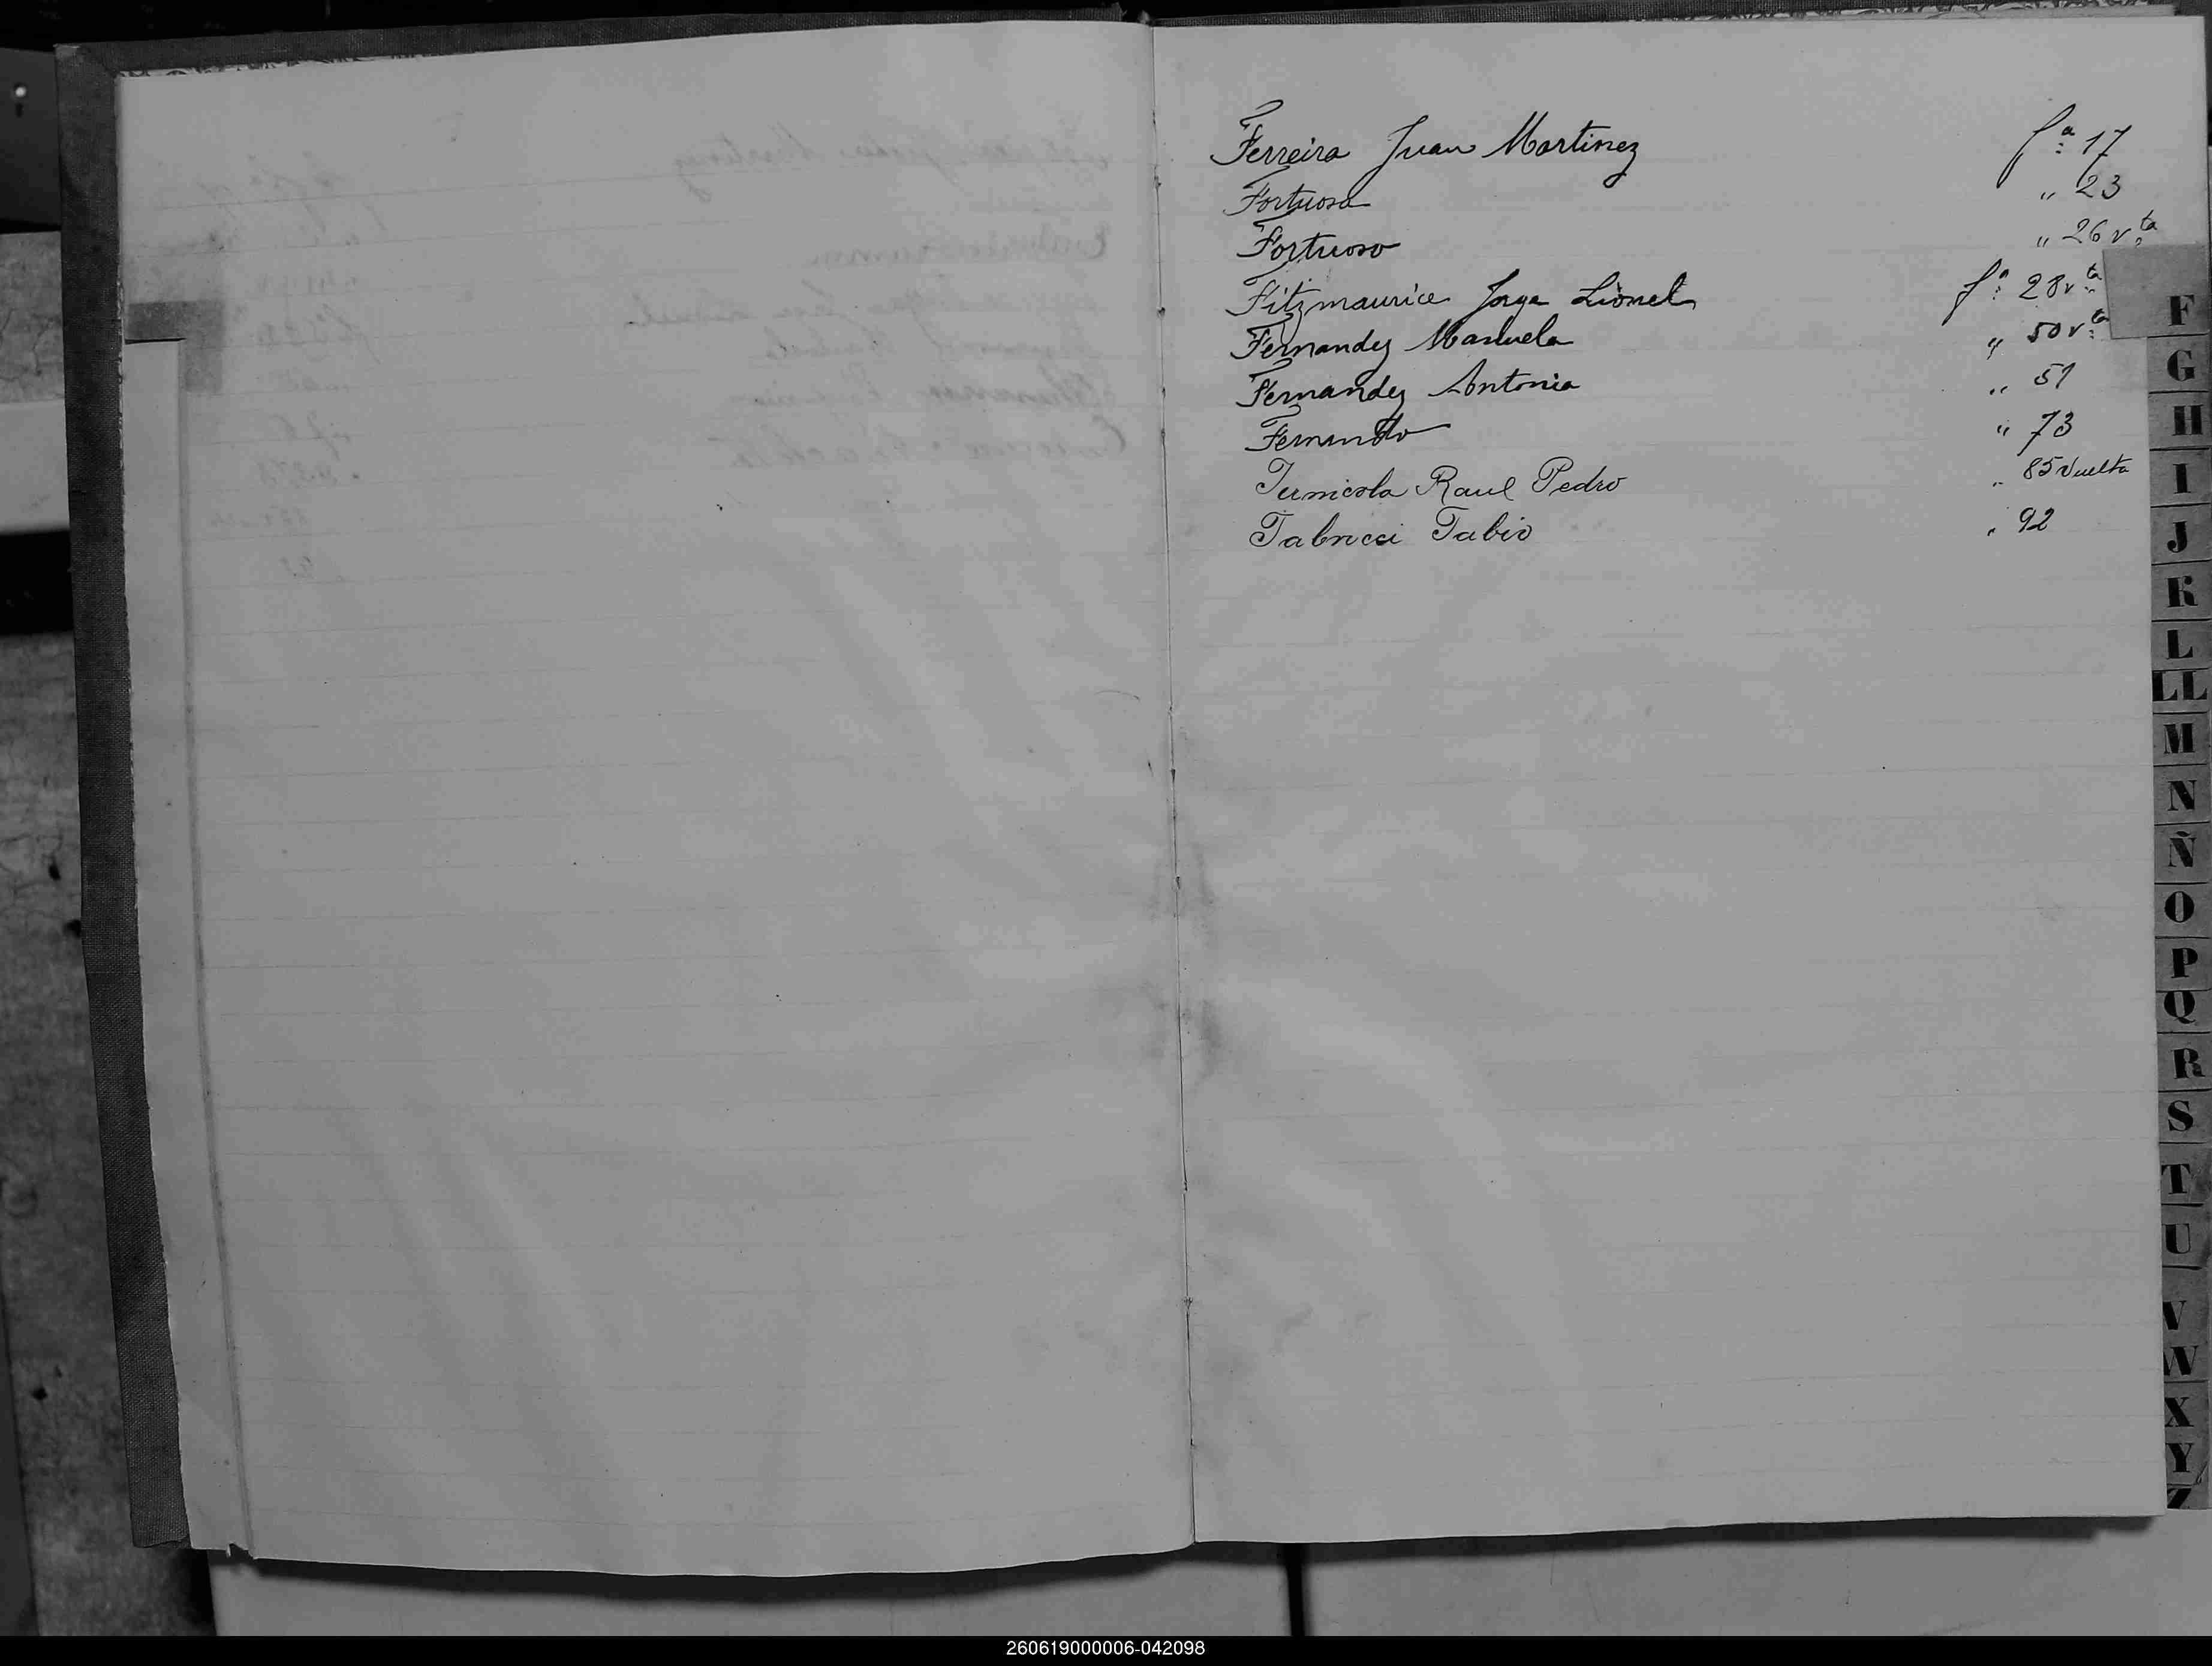 Ferreira Juan Martinez fª 17
Fortuosa " 23
Fortuoso " 26 vta
Fitzmaurice Jorge Lionel fª 28 vta
Fernandez Manuela " 50 vta
Fernandez Antonia " 51
Fernando " 73
Fernicola Raul Pedro " 85 Vuelta
Fabricci Fabio " 92
F
G
H
I
J
K
L
LL
M
N
Ñ
O
P
Q
R
S
T
U
V
W
X
Y
Z
260619000006-042098